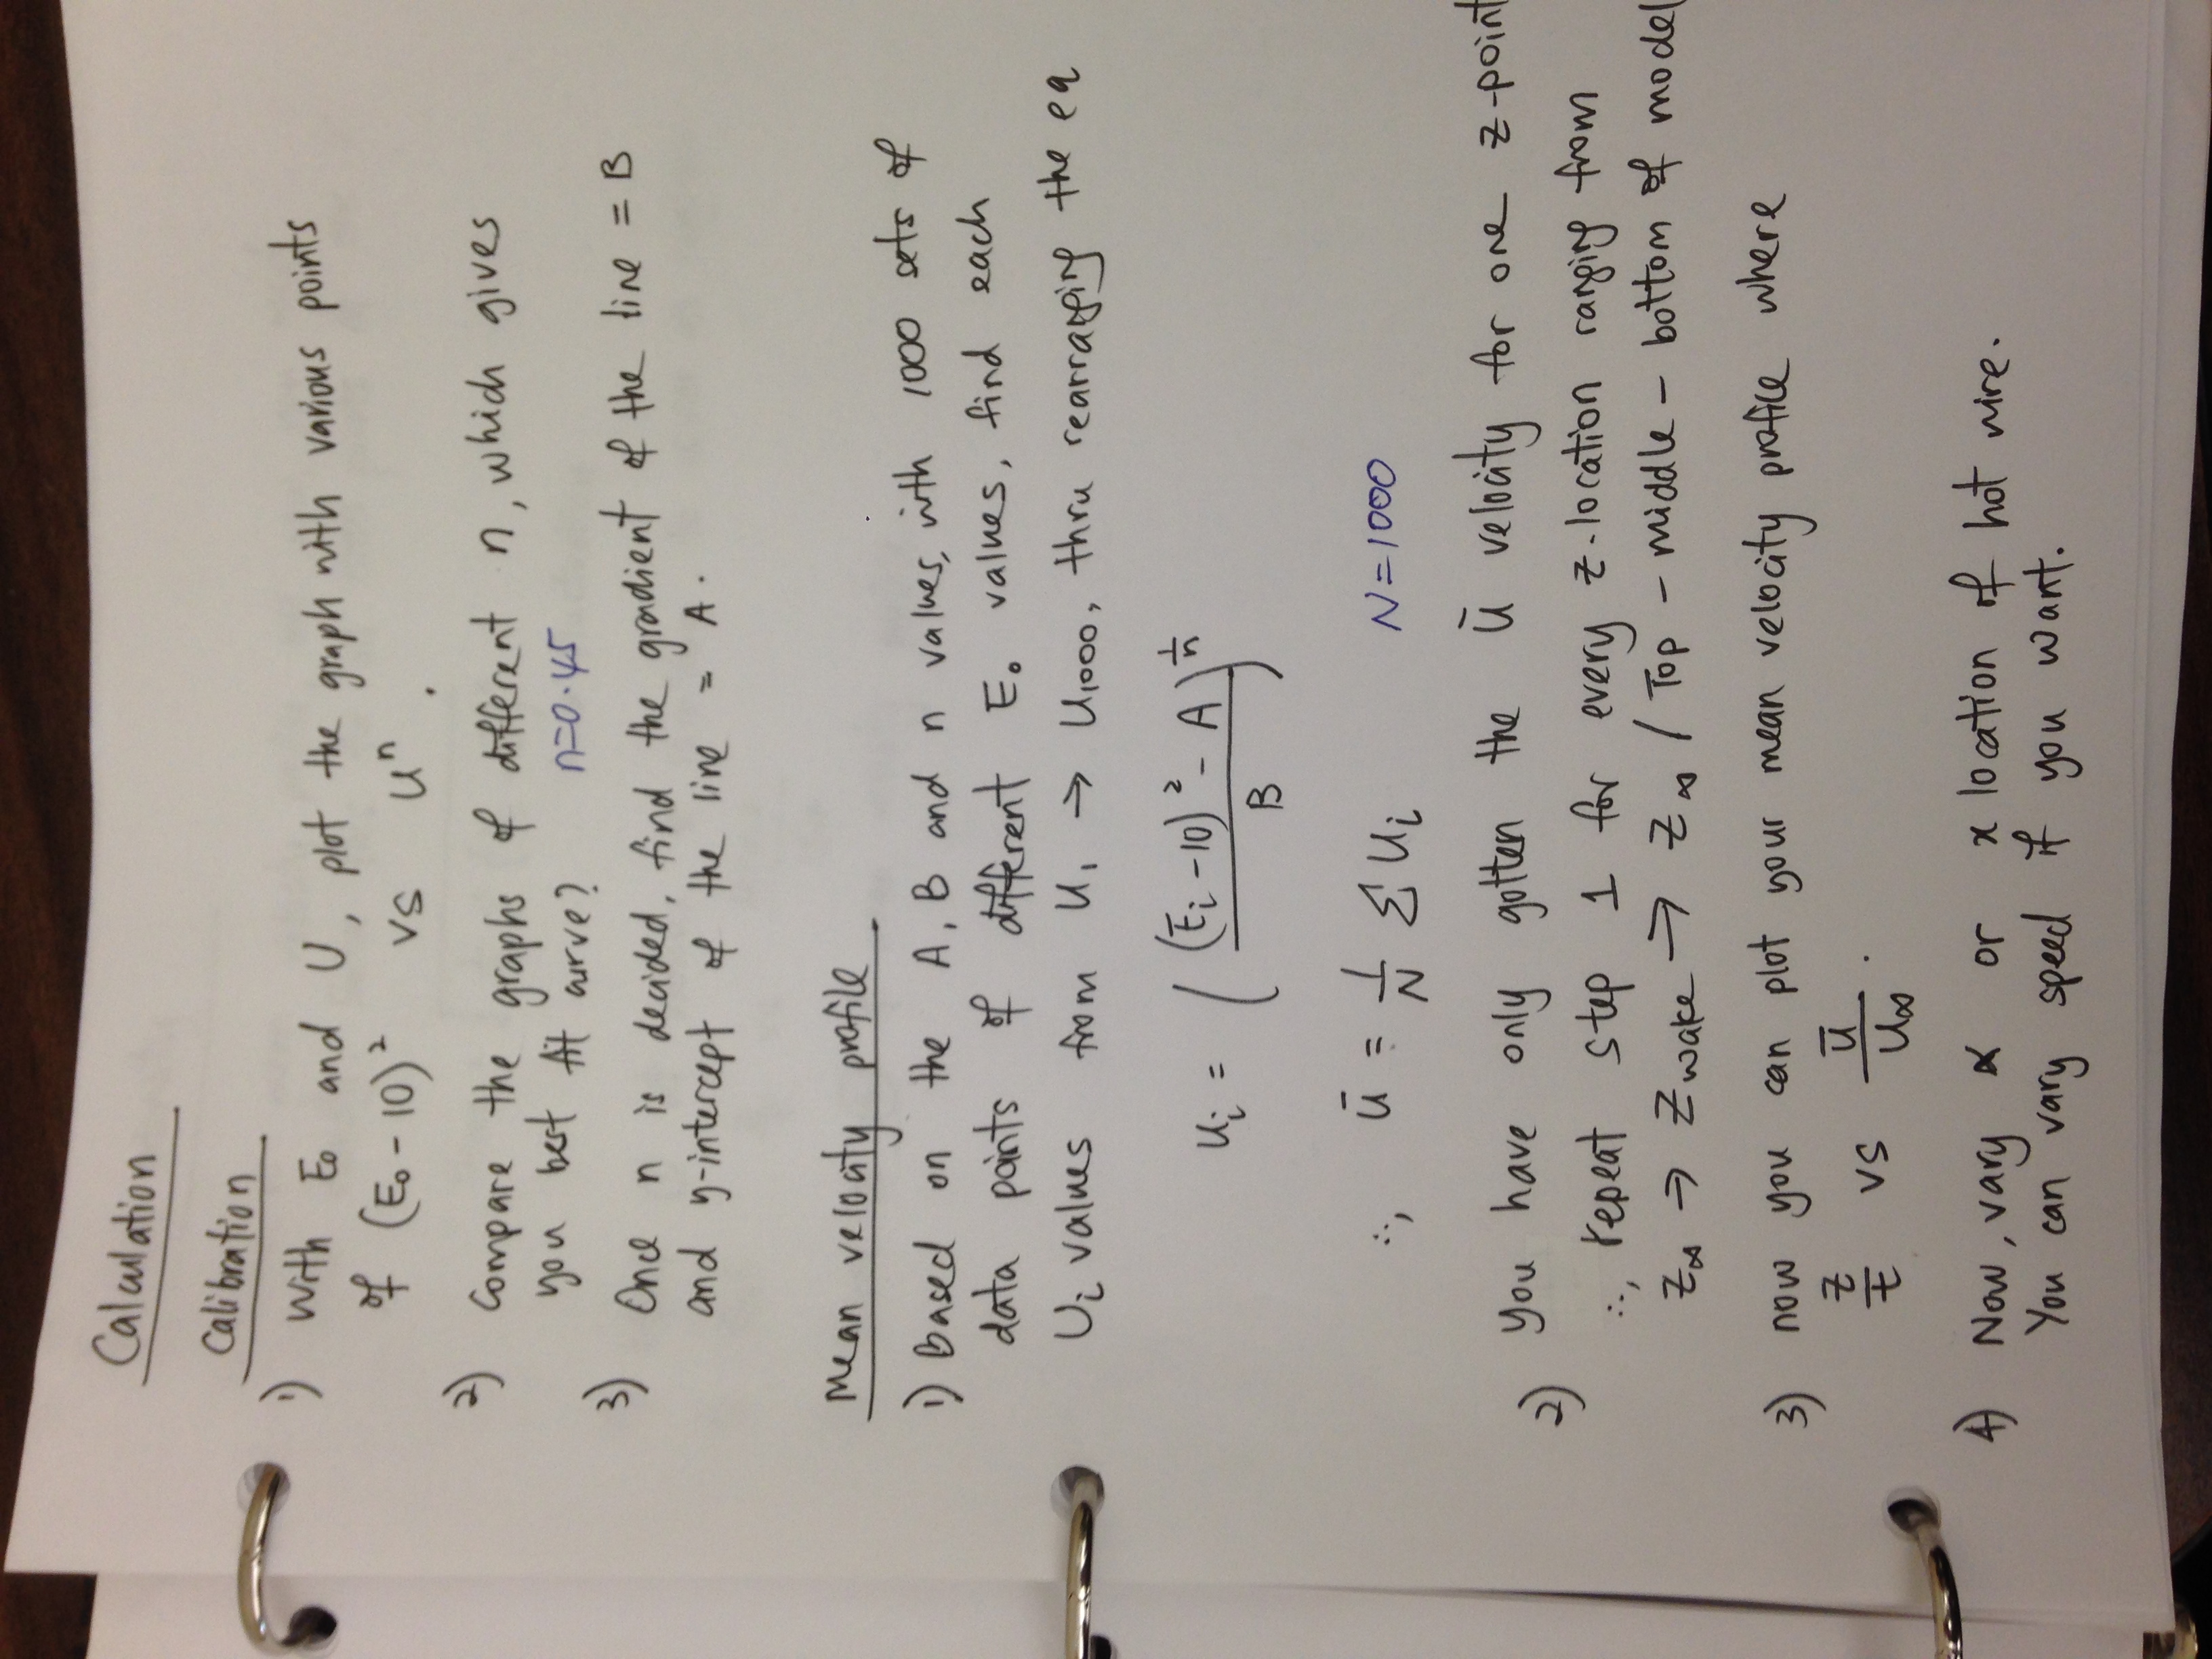 Calculation
Calibration
1) With E₀ and U, plot the graph with various points
of (E₀ - 10)² vs Uⁿ.
2) Compare the graphs of different n, which gives
you best fit curve? n=0.45
3) Once n is decided, find the gradient of the line = B
and y-intercept of the line = A.
Mean velocity profile
1) Based on the A, B and n values, with 1000 sets of
data points of different E₀ values, find each
Uᵢ values from U₁ → U₁₀₀₀, thru rearranging the eq
Uᵢ = (((Eᵢ - 10)² - A) / B)^(1/n)
∴, ū = 1/N Σ Uᵢ N=1000
2) You have only gotten the ū velocity for one z-point
∴, repeat step 1 for every z-location ranging from
Z∞ → Z wake → Z∞ / Top - middle - bottom of model
3) now you can plot your mean velocity profile where
z/t vs ū/U∞.
4) Now, vary α or x location of hot wire.
You can vary speed if you want.